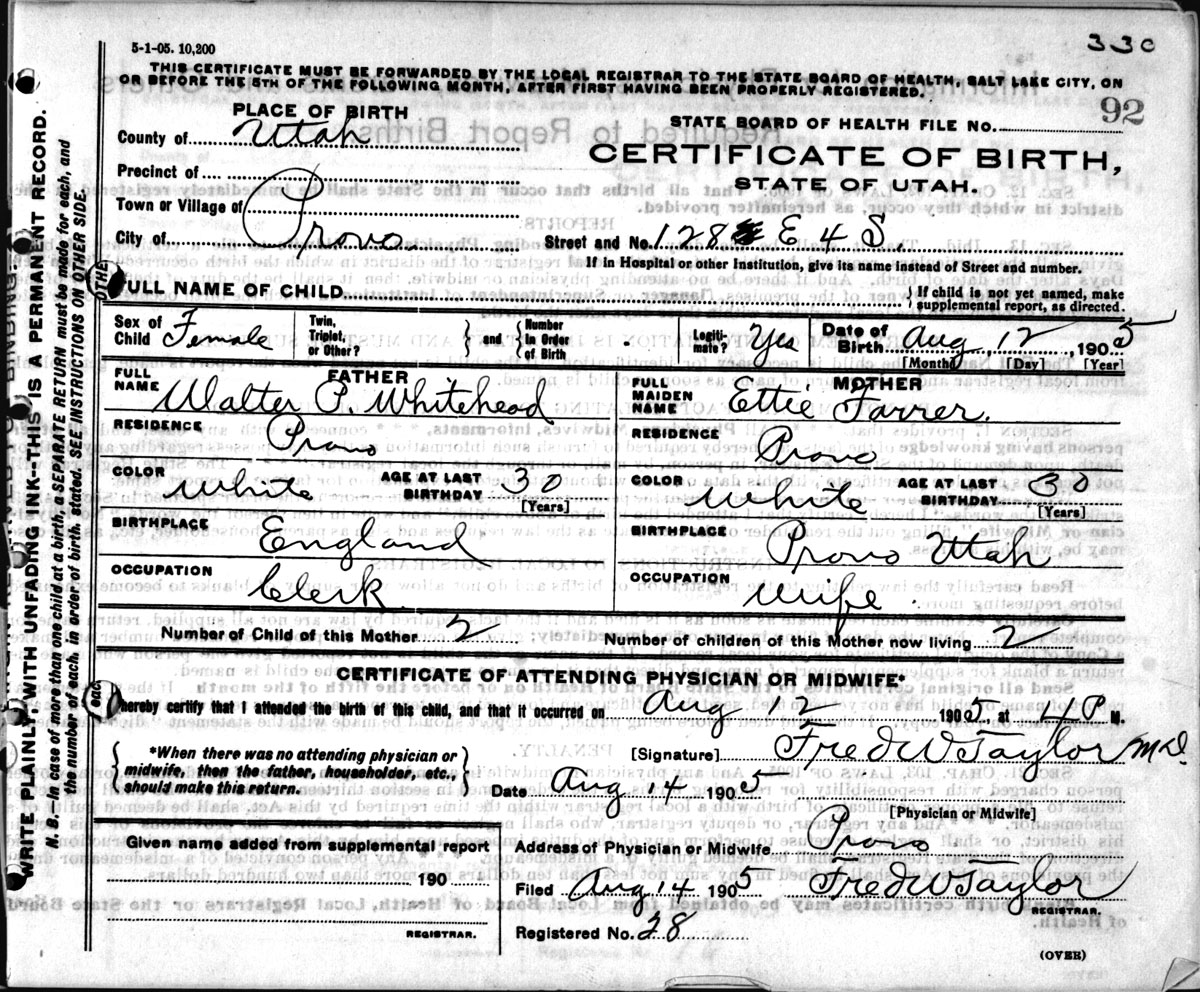 330
5-1-05. 10,200
THIS CERTIFICATE MUST BE FORWARDED BY THE LOCAL REGISTRAR TO THE STATE BOARD OF HEALTH, SALT LAKE CITY, ON
OR BEFORE THE 5TH OF THE FOLLOWING MONTH, AFTER FIRST HAVING BEEN PROPERLY REGISTERED.
PLACE OF BIRTH
County of Utah
Precinct of
Town or Village of
City of Provo
STATE BOARD OF HEALTH FILE NO. 92
CERTIFICATE OF BIRTH,
STATE OF UTAH.
Street and No. 128 E 4 S.
If in Hospital or other Institution, give its name instead of Street and number.
FULL NAME OF CHILD
{ If child is not yet named, make
supplemental report, as directed.
Sex of Child Female
Twin, Triplet, or Other? } and { Number in Order of Birth
Legiti-mate? Yes
Date of Birth Aug 12, 1905
[Month] [Day] [Year]
FATHER
FULL NAME Walter P. Whitehead
RESIDENCE Provo
COLOR White AGE AT LAST BIRTHDAY 30
[Years]
BIRTHPLACE England
OCCUPATION Clerk
MOTHER
FULL MAIDEN NAME Ettie Farrer.
RESIDENCE Provo
COLOR White AGE AT LAST BIRTHDAY 30
[Years]
BIRTHPLACE Provo Utah
OCCUPATION Wife
Number of Child of this Mother 2
Number of children of this Mother now living 2
CERTIFICATE OF ATTENDING PHYSICIAN OR MIDWIFE*
hereby certify that I attended the birth of this child, and that it occurred on Aug 12 1905, at 4 P M.
{ *When there was no attending physician or
midwife, then the father, householder, etc.,
should make this return. }
[Signature] Fred W Taylor M.D.
Date Aug 14 1905
[Physician or Midwife]
Given name added from supplemental report
190
REGISTRAR.
Address of Physician or Midwife Provo
Filed Aug 14 1905 Fred W Taylor
REGISTRAR.
Registered No. 28
(OVER)
WRITE PLAINLY, WITH UNFADING INK--THIS IS A PERMANENT RECORD.
N. B.--In case of more than one child at a birth, a SEPARATE RETURN must be made for each, and
the number of each, in order of birth, stated. SEE INSTRUCTIONS ON OTHER SIDE.